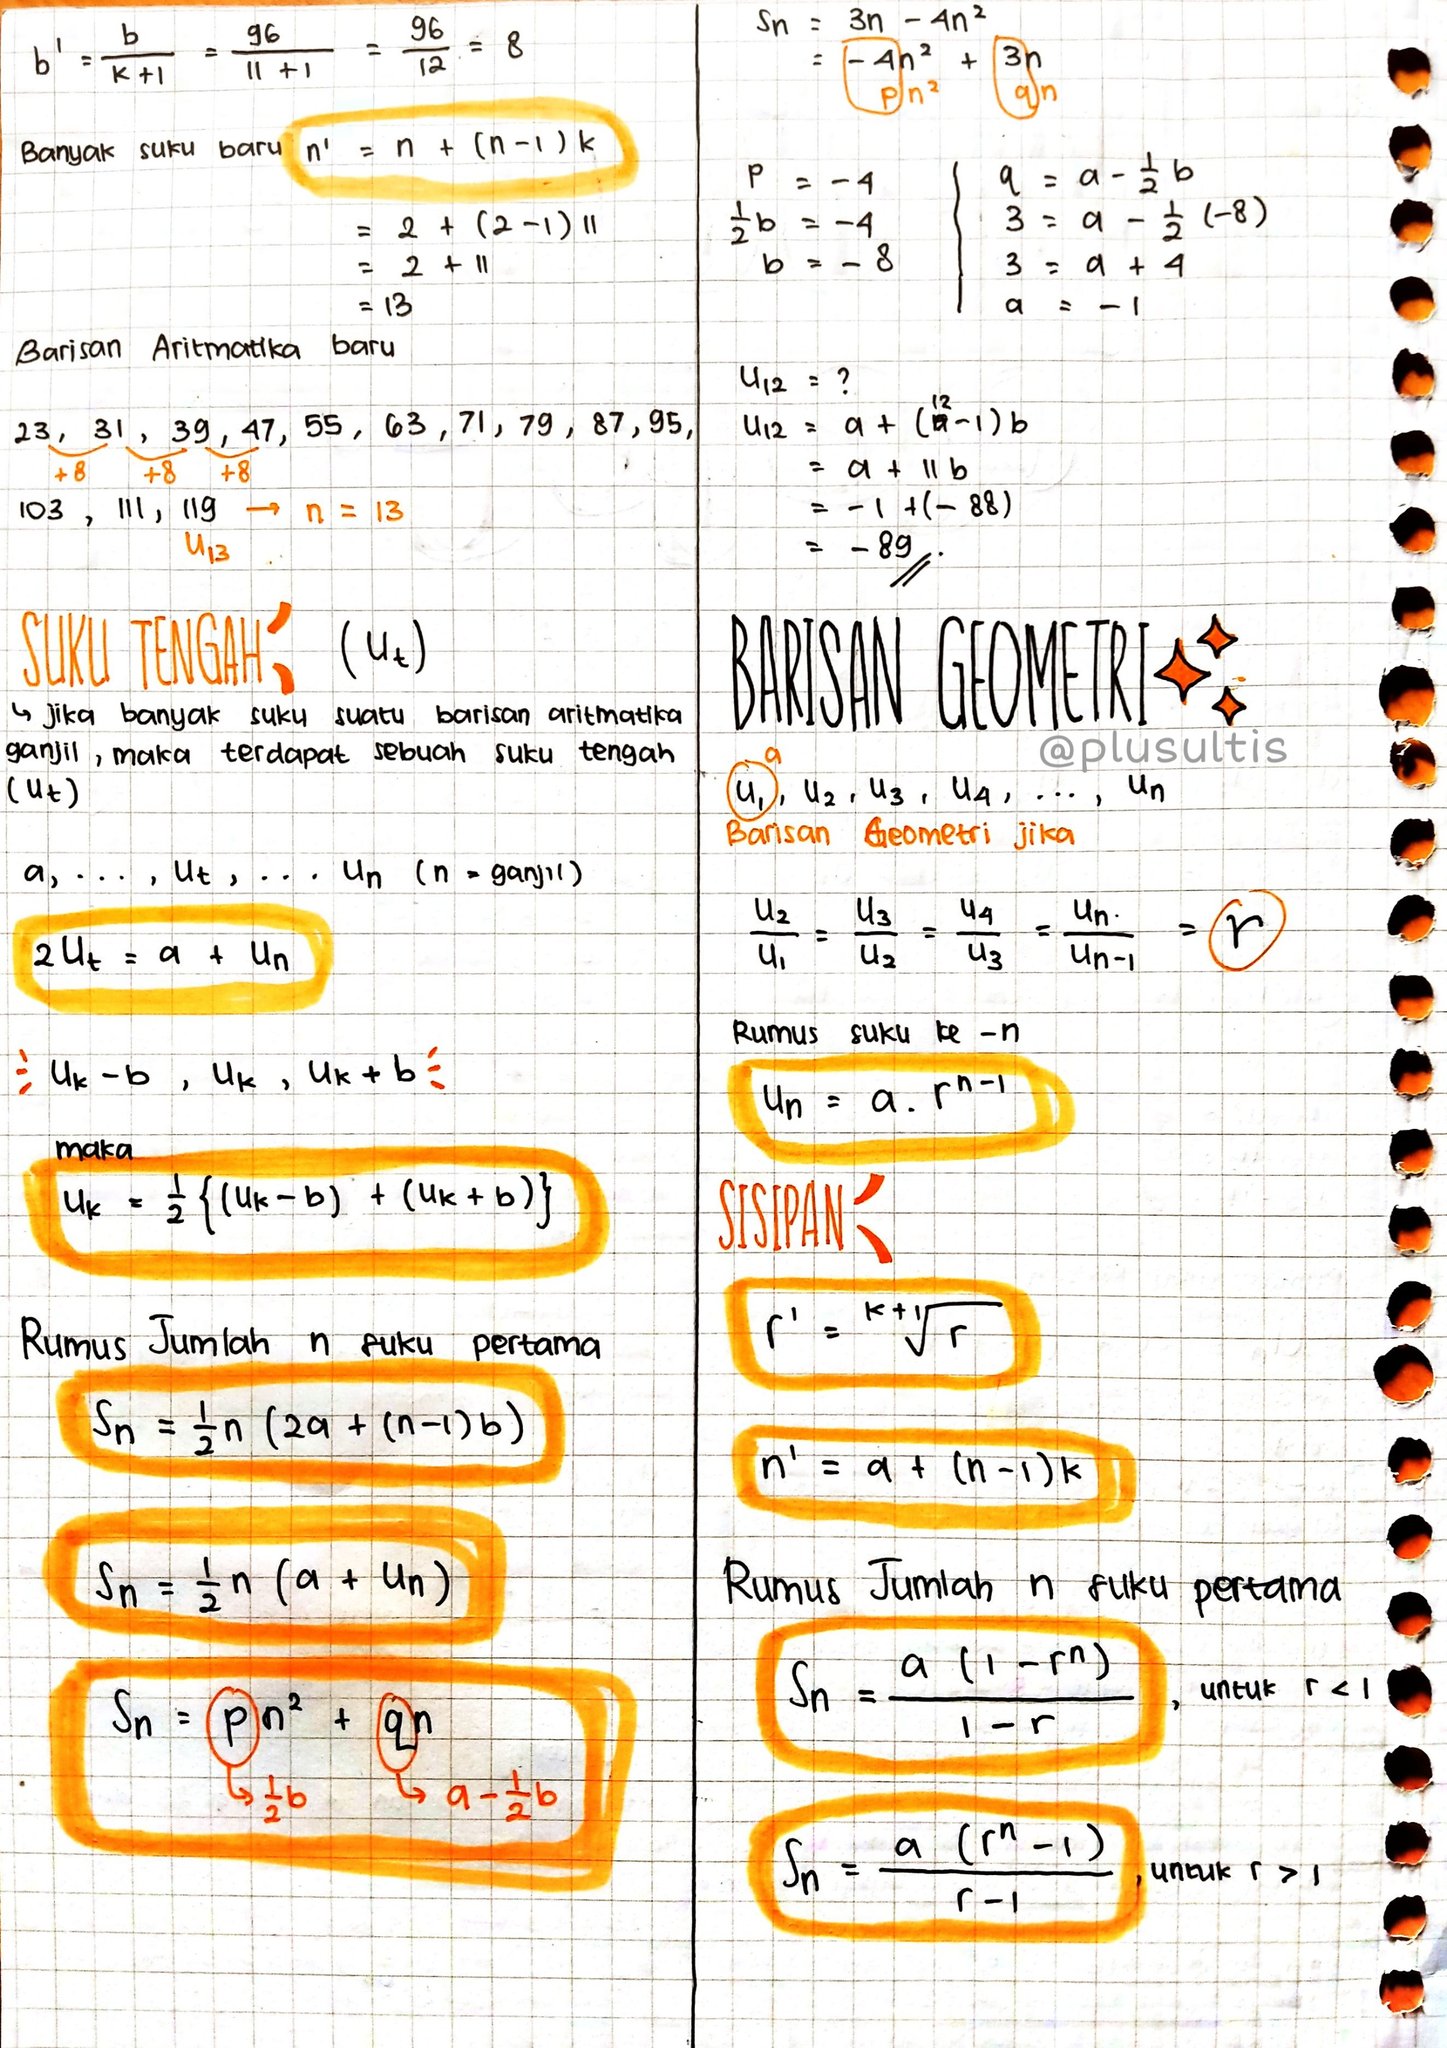 b' = b/(k+1) = 96/(11+1) = 96/12 = 8
Banyak suku baru n' = n + (n-1)k
= 2 + (2-1)11
= 2 + 11
= 13
Barisan Aritmatika baru
23, 31, 39, 47, 55, 63, 71, 79, 87, 95,
+8 +8 +8
103, 111, 119 → n = 13
U₁₃
SUKU TENGAH (Uₜ)
↳ jika banyak suku suatu barisan aritmatika
ganjil, maka terdapat sebuah suku tengah
(Uₜ)
a, ..., Uₜ, ... Uₙ (n = ganjil)
2Uₜ = a + Uₙ
Uₖ - b, Uₖ, Uₖ + b
maka
Uₖ = ½{(Uₖ - b) + (Uₖ + b)}
Rumus Jumlah n suku pertama
Sₙ = ½n (2a + (n-1)b)
Sₙ = ½n (a + Uₙ)
Sₙ = pn² + qn
↳ ½b ↳ a - ½b
Sn = 3n - 4n²
= -4n² + 3n
pn² qn
P = -4
½b = -4
b = -8
q = a - ½b
3 = a - ½(-8)
3 = a + 4
a = -1
U₁₂ = ?
U₁₂ = a + (12-1)b
= a + 11b
= -1 + (-88)
= -89 //.
BARISAN GEOMETRI
@plusultis
a
U₁, U₂, U₃, U₄, ..., Uₙ
Barisan Geometri jika
U₂/U₁ = U₃/U₂ = U₄/U₃ = Uₙ/Uₙ₋₁ = r
Rumus suku ke -n
Uₙ = a . rⁿ⁻¹
SISIPAN
r' = ᵏ⁺¹√r
n' = a + (n-1)k
Rumus Jumlah n suku pertama
Sₙ = a (1 - rⁿ)/(1 - r), untuk r < 1
Sₙ = a (rⁿ - 1)/(r - 1), untuk r > 1